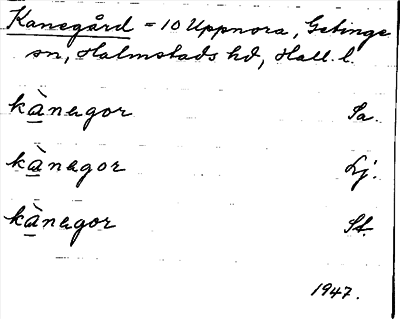 Kanegård = 10 Uppnora, Getinge
sn, Halmstads hd, Hall. l.
kànagor Sa.
kànagor Lj.
kànagor St.
1947.